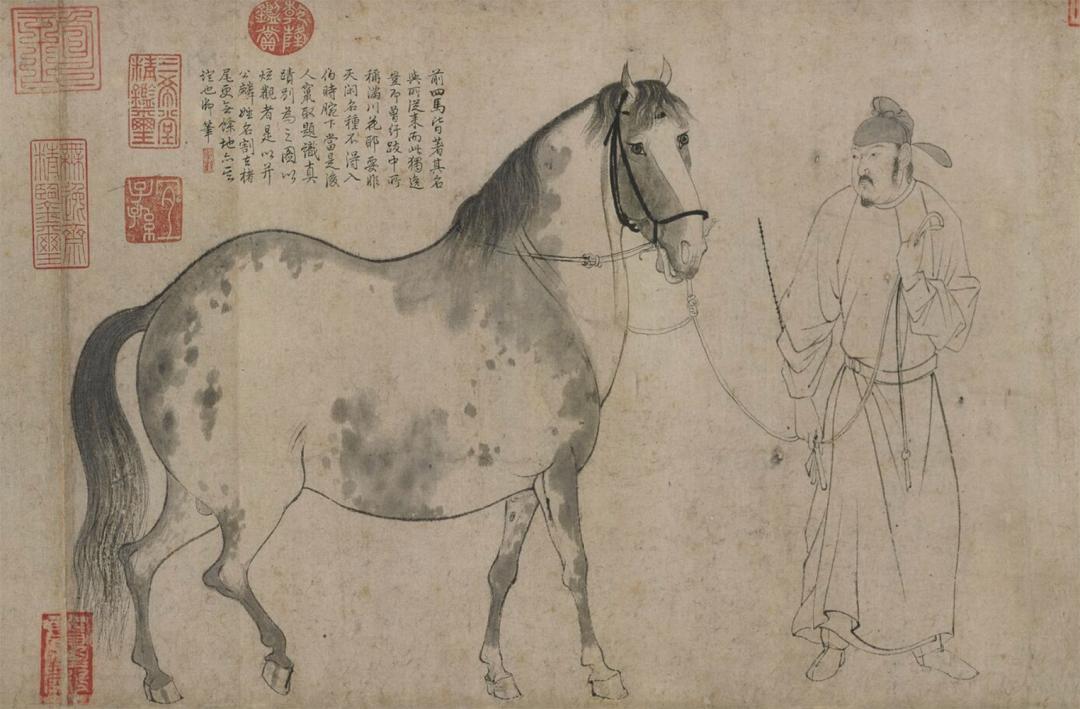 乾隆鑑賞
前四馬皆著其名
與所從来而此獨逸
豈即曾紆跋中所
稱滿川花耶要非
天閑名種不得入
伯時腕下當是後
人竄取題識真
蹟別為之圖以
炫觀者是以并
公麟姓名割去楮
尾更無餘地亦一
證也御筆
三希堂精鑑璽
宜子孫
無逸齋精鑒璽